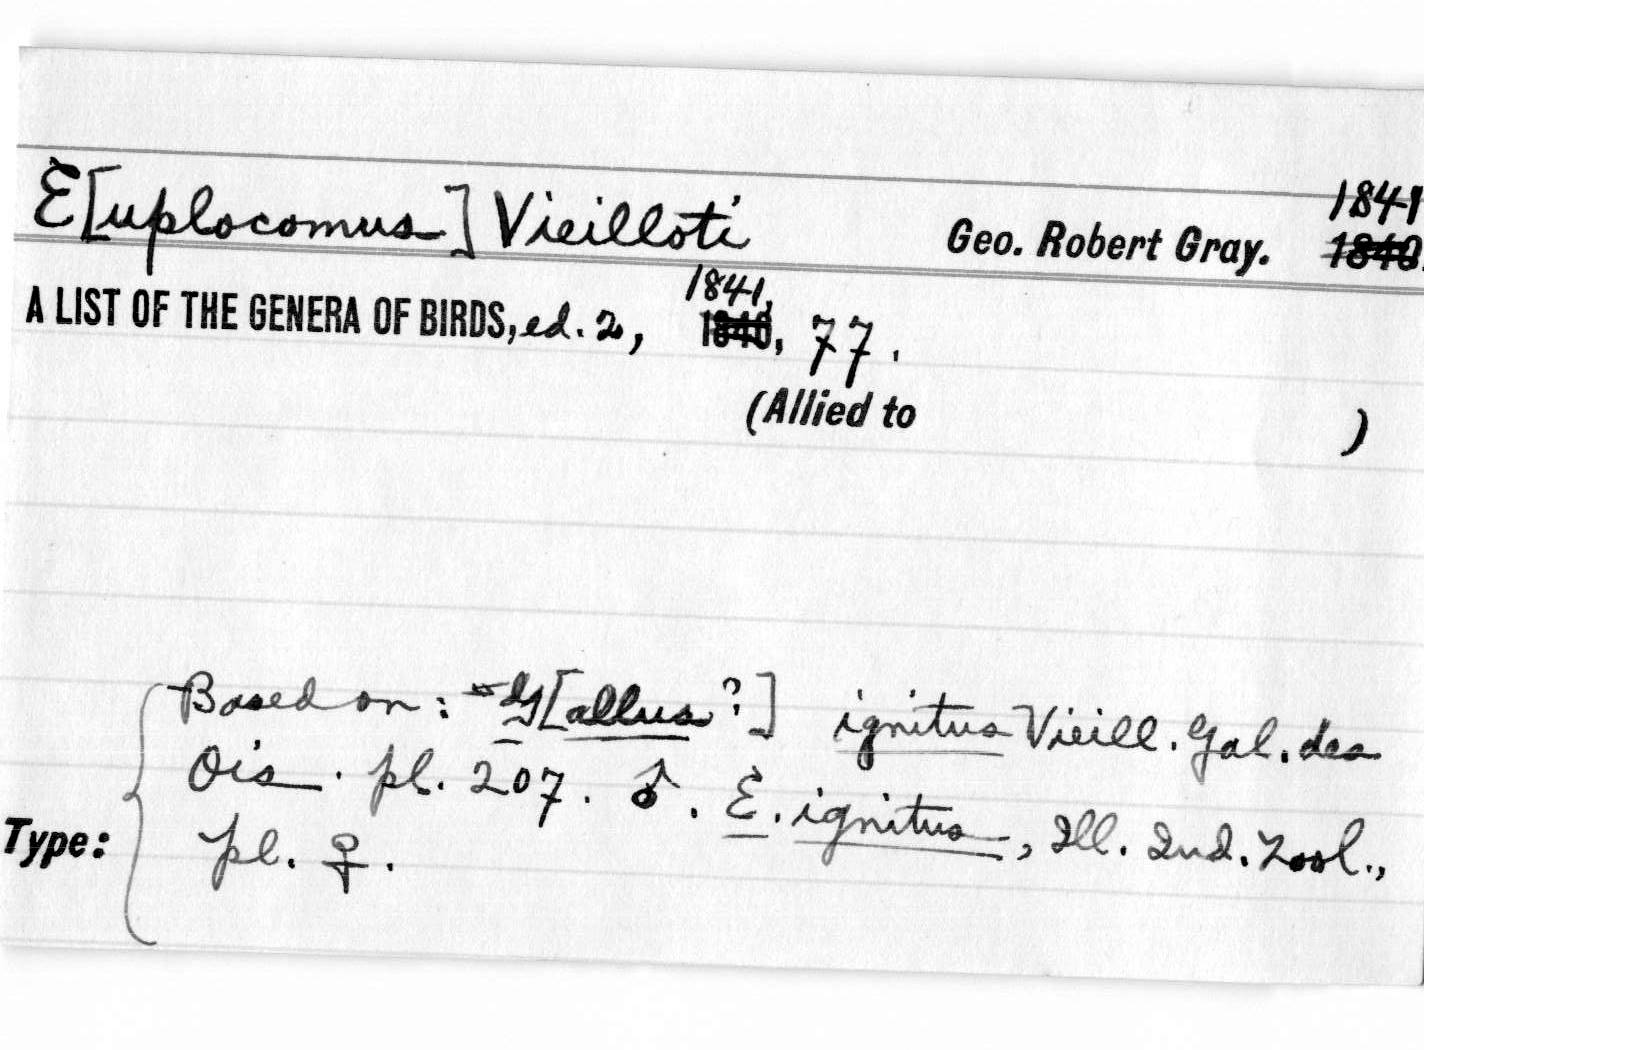 E[uplocomus] Vieilloti Geo. Robert Gray. 1841 1840.
A LIST OF THE GENERA OF BIRDS, ed. 2, 1841, 1840, 77.
(Allied to )
Based on: "G[allus?] ignitus Vieill. Gal. des
Ois. pl. 207. ♂. E. ignitus, Ill. Ind. Zool.,
Type: pl. ♀.